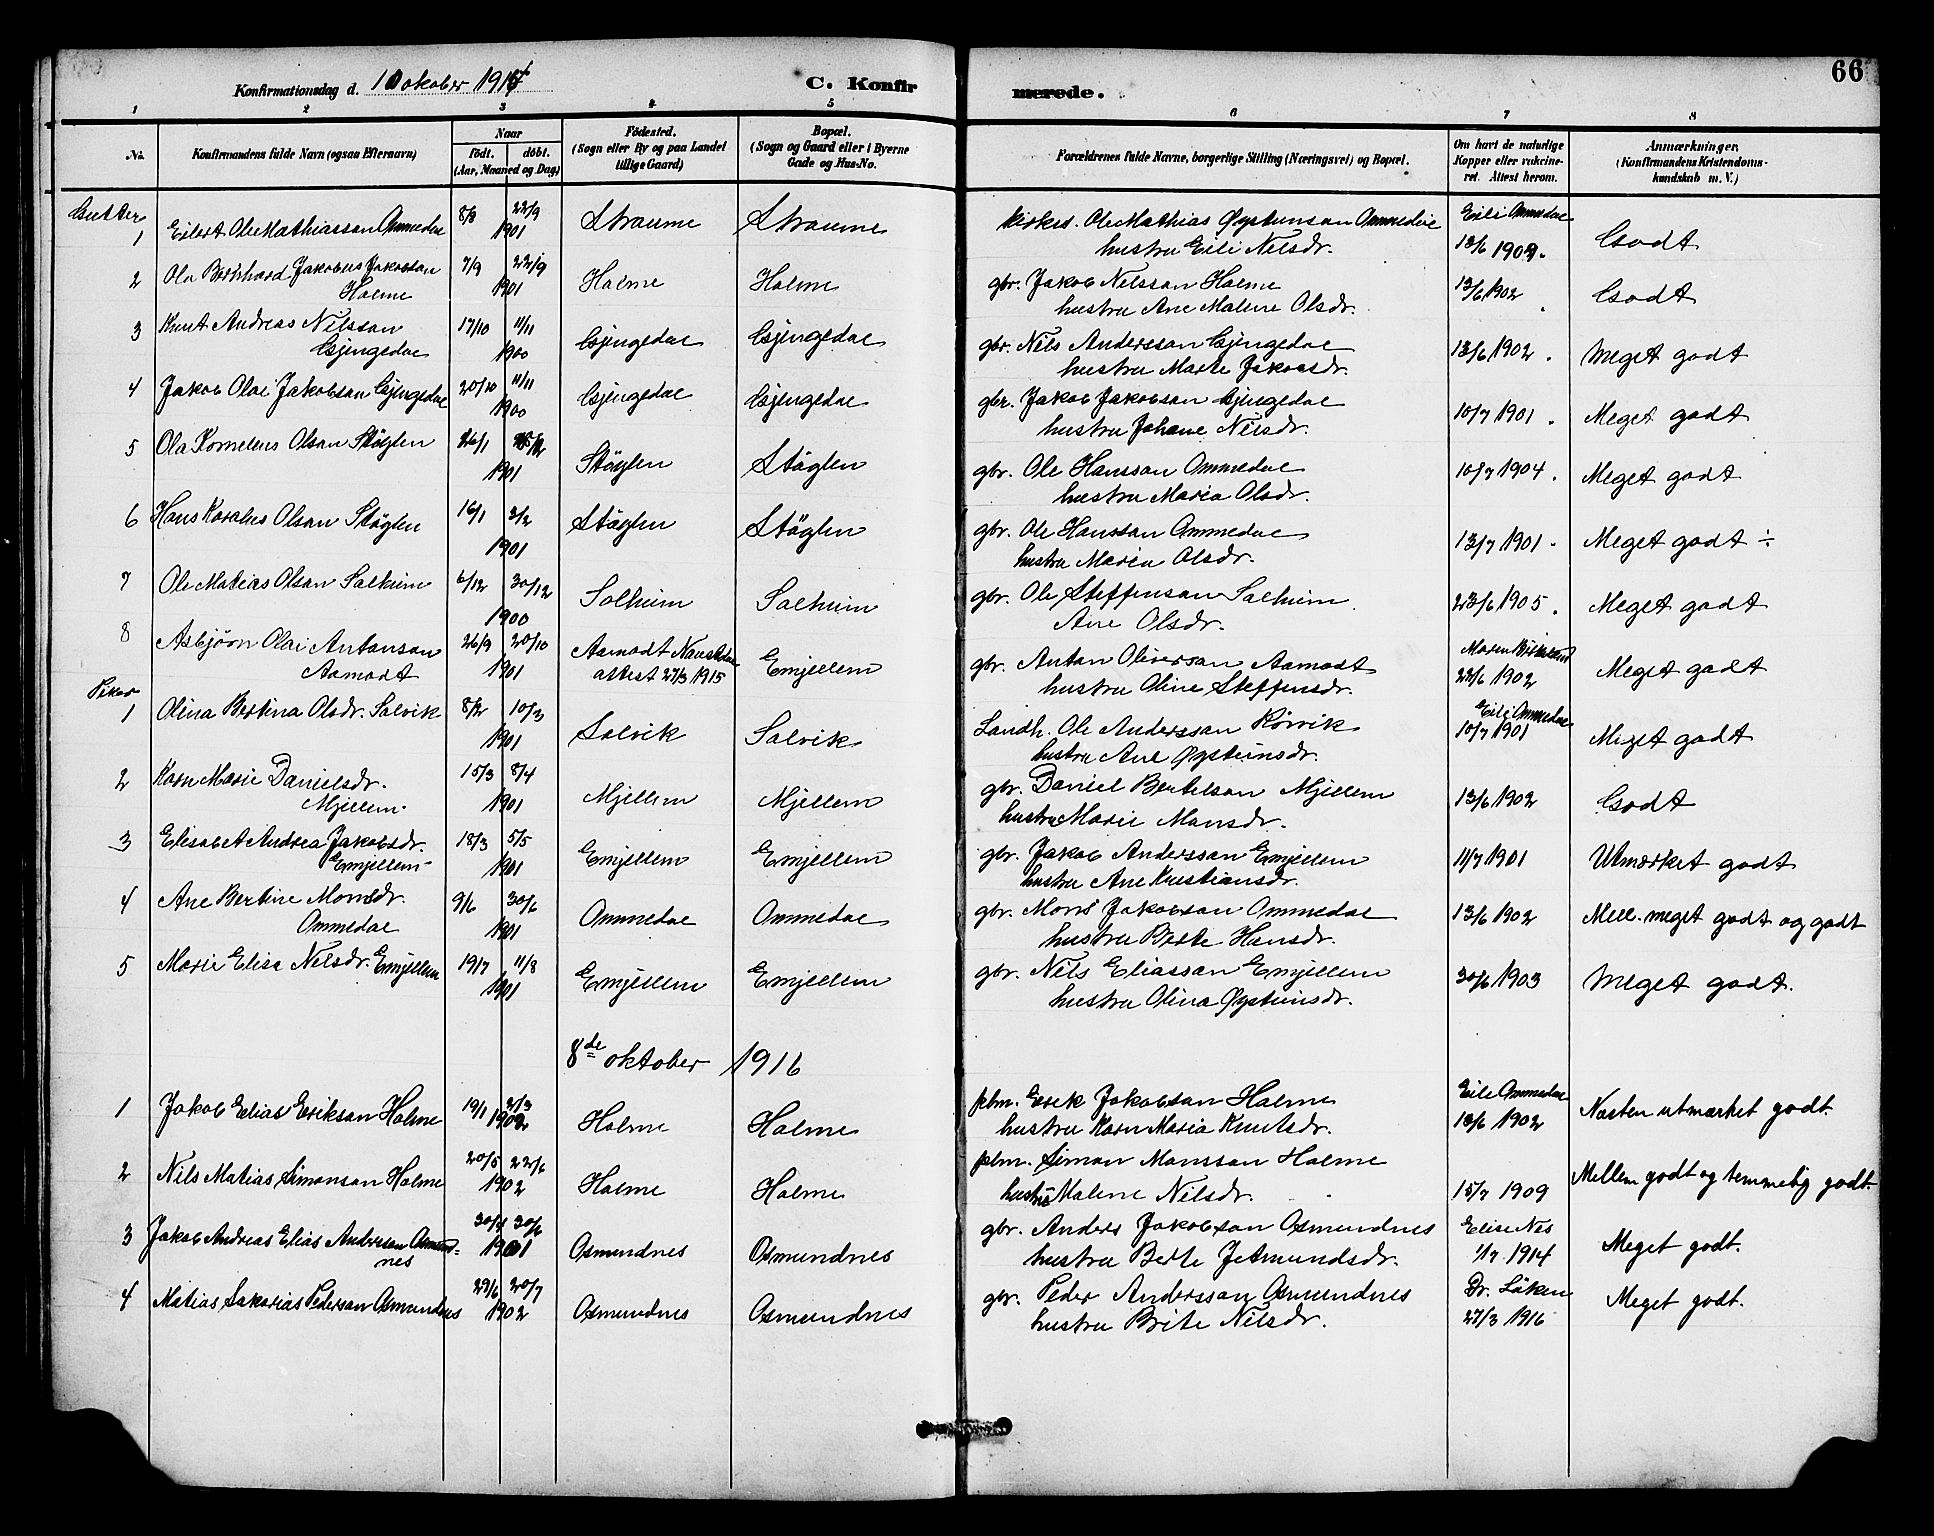 66
Konfirmationsdag d. 10 oktober 1915
C. Konfirmerede.
1 2 3 4 5 6 7 8
No.
Konfirmandens fulde Navn (ogsaa Efternavn)
Naar
født. døbt.
(Aar, Maaned og Dag)
Fødested.
(Sogn eller By og paa Landet tillige Gaard)
Bopæl.
(Sogn og Gaard eller i Byerne Gade og Hus-No.
Forældrenes fulde Navne, borgerlige Stilling (Næringsvei) og Bopæl.
Om havt de naturlige Kopper eller vakcineret. Attest herom.
Anmærkninger.
(Konfirmandens Kristendomskundskab m. V.)
Gutter
1 Eilert Ole Mathiassan Ommedae 8/8 22/9 1901 Straume Straume kirkes. Ole Mathias Øystunsan Ommedae Eili Ommedae
hustru Eili Nilsdr. 13/6 1902. Godt
2 Ola Bernhard Jakobus Jakobsan Holme 7/9 22/9 1901 Holme Holme gbr. Jakob Nilssan Holme
hustru Ane Malene Olsdr. 13/6 1902 Godt
3 Knut Andreas Nilssan Gjengedae 17/10 11/11 1900 Gjengedae Gjengedae gbr. Nils Anderssan Gjengedae
hustru Marte Jakobsdr. 13/6 1902. Meget godt
4 Jakob Olai Jakobsan Gjengedae 20/10 11/11 1900 Gjengedae Gjengedae gbr. Jakob Jakobsan Gjengedae
hustru Johane Nilsdr. 10/7 1901. Meget godt
5 Ola Kornelius Olsan Støylen 26/1 1901 Støylen Støylen gbr. Ole Hanssan Ommedae
hustru Maria Olsdr. 10/7 1904. Meget godt
6 Hans Karolius Olsan Støylen 16/1 3/2 1901 Støylen Støylen gbr. Ole Hanssan Ommedae
hustru Maria Olsdr. 13/7 1901. Meget godt ÷
7 Ole Matias Olsan Solheim 6/12 30/12 1900 Solheim Solheim gbr. Ole Steffensan Solheim
Ane Olsdr. 23/6 1905. Meget godt
8 Asbjørn Olai Antonsan Aamodt 26/9 20/10 1901 Aamodt Naustdae attest 27/3 1915 Emjellem gbr. Anton Oliversan Aamodt
hustru Oline Steffensdr. Maren 22/6 1902 Meget godt
Piker
1 Olina Bertina Olsdr. Solvik 8/2 10/3 1901 Solvik Solvik Landh. Ole Anderssan Rørvik Eili Ommedae
hustru Ane Øystunsdr. 10/7 1901 Meget godt
2 Karn Marie Danielsdr. Mjellem 15/3 8/4 1901 Mjellem Mjellem gbr. Daniel Bertelsan Mjellem
hustru Marie Mansdr. 13/6 1902 Godt
3 Elisabet Andrea Jakobsdr. Emjellem 18/3 5/5 1901 Emjellem Emjellem gbr. Jakob Anderssan Emjellem
hustru Ane Kristiansdr. 11/7 1901 Utmærket godt
4 Ane Bertine Monsdr. Ommedae 9/6 30/6 1901 Ommedae Ommedae gbr. Mons Jakobsan Ommedae
hustru Berte Hansdr. 13/6 1902 Mell. meget godt og godt
5 Marie Elise Nilsdr. Emjellem 19/7 11/8 1901 Emjellem Emjellem gbr. Nils Eliassan Emjellem
hustru Olina Øystunsdr. 30/6 1903 Meget godt.
8de oktober 1916
1 Jakob Elias Eriksan Holme 19/1 2/3 1902 Holme Holme plm. Erik Jakobsan Holme Eili Ommedae
hustru Karn Maria Knutsdr. 13/6 1902 Næsten utmærket godt.
2 Nils Matias Simonsan Holme 20/5 22/6 1902 Holme Holme plm. Simon Monssan Holme
hustru Malene Nilsdr. 15/7 1909 Mellem godt og temmelig godt.
3 Jakob Andreas Elias Andersan Osmundnes 30/6 1901 Osmundnes Osmundnes gbr. Anders Jakobsan Osmundnes Elise Nes
hustru Berte Jetmundsdr. 1/7 1914 Meget godt.
4 Matias Sakarias Pedersan Osmundnes 29/6 20/7 1902 Osmundnes Osmundnes gbr. Peder Anderssan Osmundnes Dr. Løken
hustru Brite Nilsdr. 27/3 1916 Meget godt.